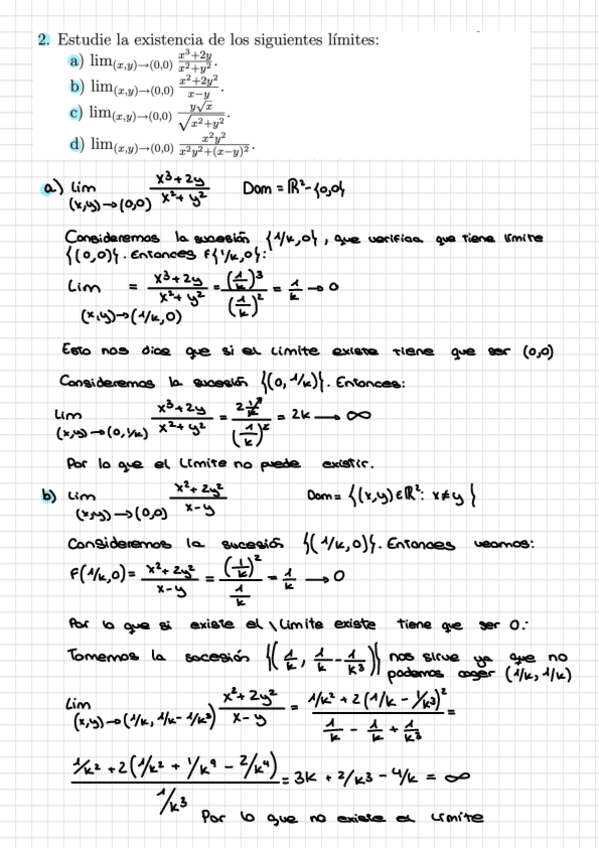 2. Estudie la existencia de los siguientes límites:
a) lim(x,y)→(0,0) (x³+2y)/(x²+y²).
b) lim(x,y)→(0,0) (x²+2y²)/(x−y).
c) lim(x,y)→(0,0) y√x/√(x²+y²).
d) lim(x,y)→(0,0) x²y²/(x²y²+(x−y)²).
a) Lim (x,y)→(0,0) (x³+2y)/(x²+y²) Dom = ℝ²-{0,0}
Consideremos la sucesión {1/k,0}, que verifica que tiene límite
{(0,0)}. Entonces f{1/k,0}:
Lim (x,y)→(1/k,0) = (x³+2y)/(x²+y²) = (1/k)³/(1/k)² = 1/k → 0
Esto nos dice que si el límite existe tiene que ser (0,0)
Consideremos la sucesión {(0,1/k)}. Entonces:
Lim (x,y)→(0,1/k) (x³+2y)/(x²+y²) = (2 1/k)/(1/k)² = 2k → ∞
Por lo que el límite no puede existir.
b) Lim (x,y)→(0,0) (x²+2y²)/(x-y) Dom = {(x,y)∈ℝ²: x≠y}
Consideremos la sucesión {(1/k,0)}. Entonces veamos:
F(1/k,0) = (x²+2y²)/(x-y) = (1/k)²/(1/k) = 1/k → 0
Por lo que si existe el \ límite existe tiene que ser 0.:
Tomemos la socesión {(1/k, 1/k - 1/k³)} nos sirve ya que no
podemos coger (1/k,1/k)
Lim (x,y)→(1/k,1/k-1/k³) (x²+2y²)/(x-y) = (1/k²+2(1/k-1/k³)²)/(1/k - 1/k + 1/k³) =
(1/k²+2(1/k²+1/k⁹-2/k⁴))/(1/k³) = 3k + 2/k3 - 4/k = ∞
Por lo que no existe el límite